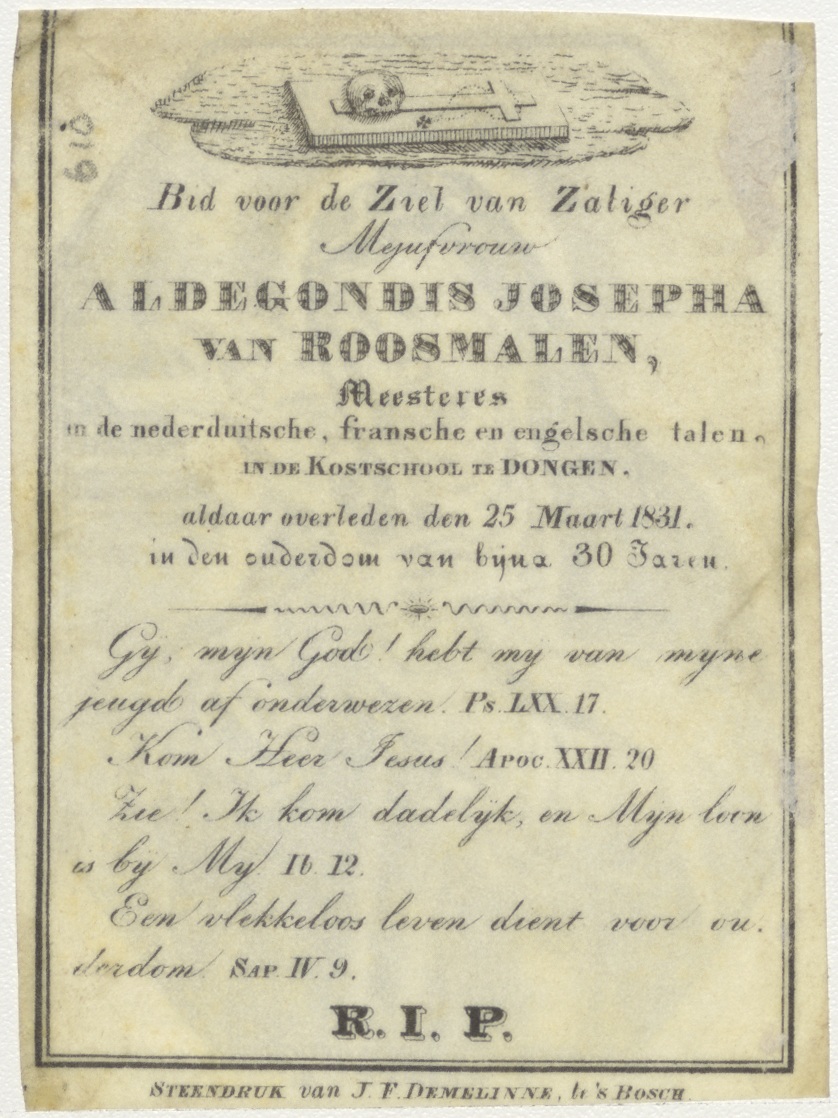 610
Bid voor de Ziel van Zaliger
Mejufvrouw
ALDEGONDIS JOSEPHA
VAN ROOSMALEN,
Meesteres
in de nederduitsche, fransche en engelsche talen,
IN DE KOSTSCHOOL TE DONGEN.
aldaar overleden den 25 Maart 1831.
in den ouderdom van bijna 30 Jaren.
Gy, myn God! hebt my van myne
jeugd af onderwezen. Ps. LXX. 17.
Kom Heer Jesus! APOC. XXII. 20
Zie! Ik kom dadelyk, en Myn loon
is by My. Ib. 12.
Een vlekkeloos leven dient voor ou.
derdom. SAP. IV. 9.
R. I. P.
STEENDRUK van J. F. DEMELINNE, te 's BOSCH